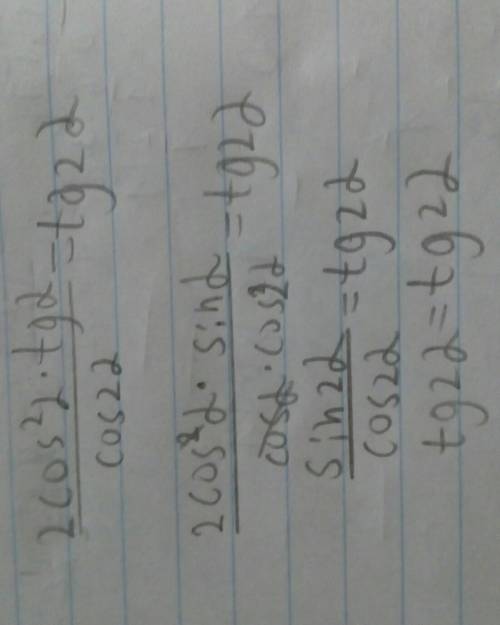 2cos²α · tgα / cos2α = tg2α
2cos²α · sinα / cosα · cos2α = tg2α
sin2α / cos2α = tg2α
tg2α = tg2α